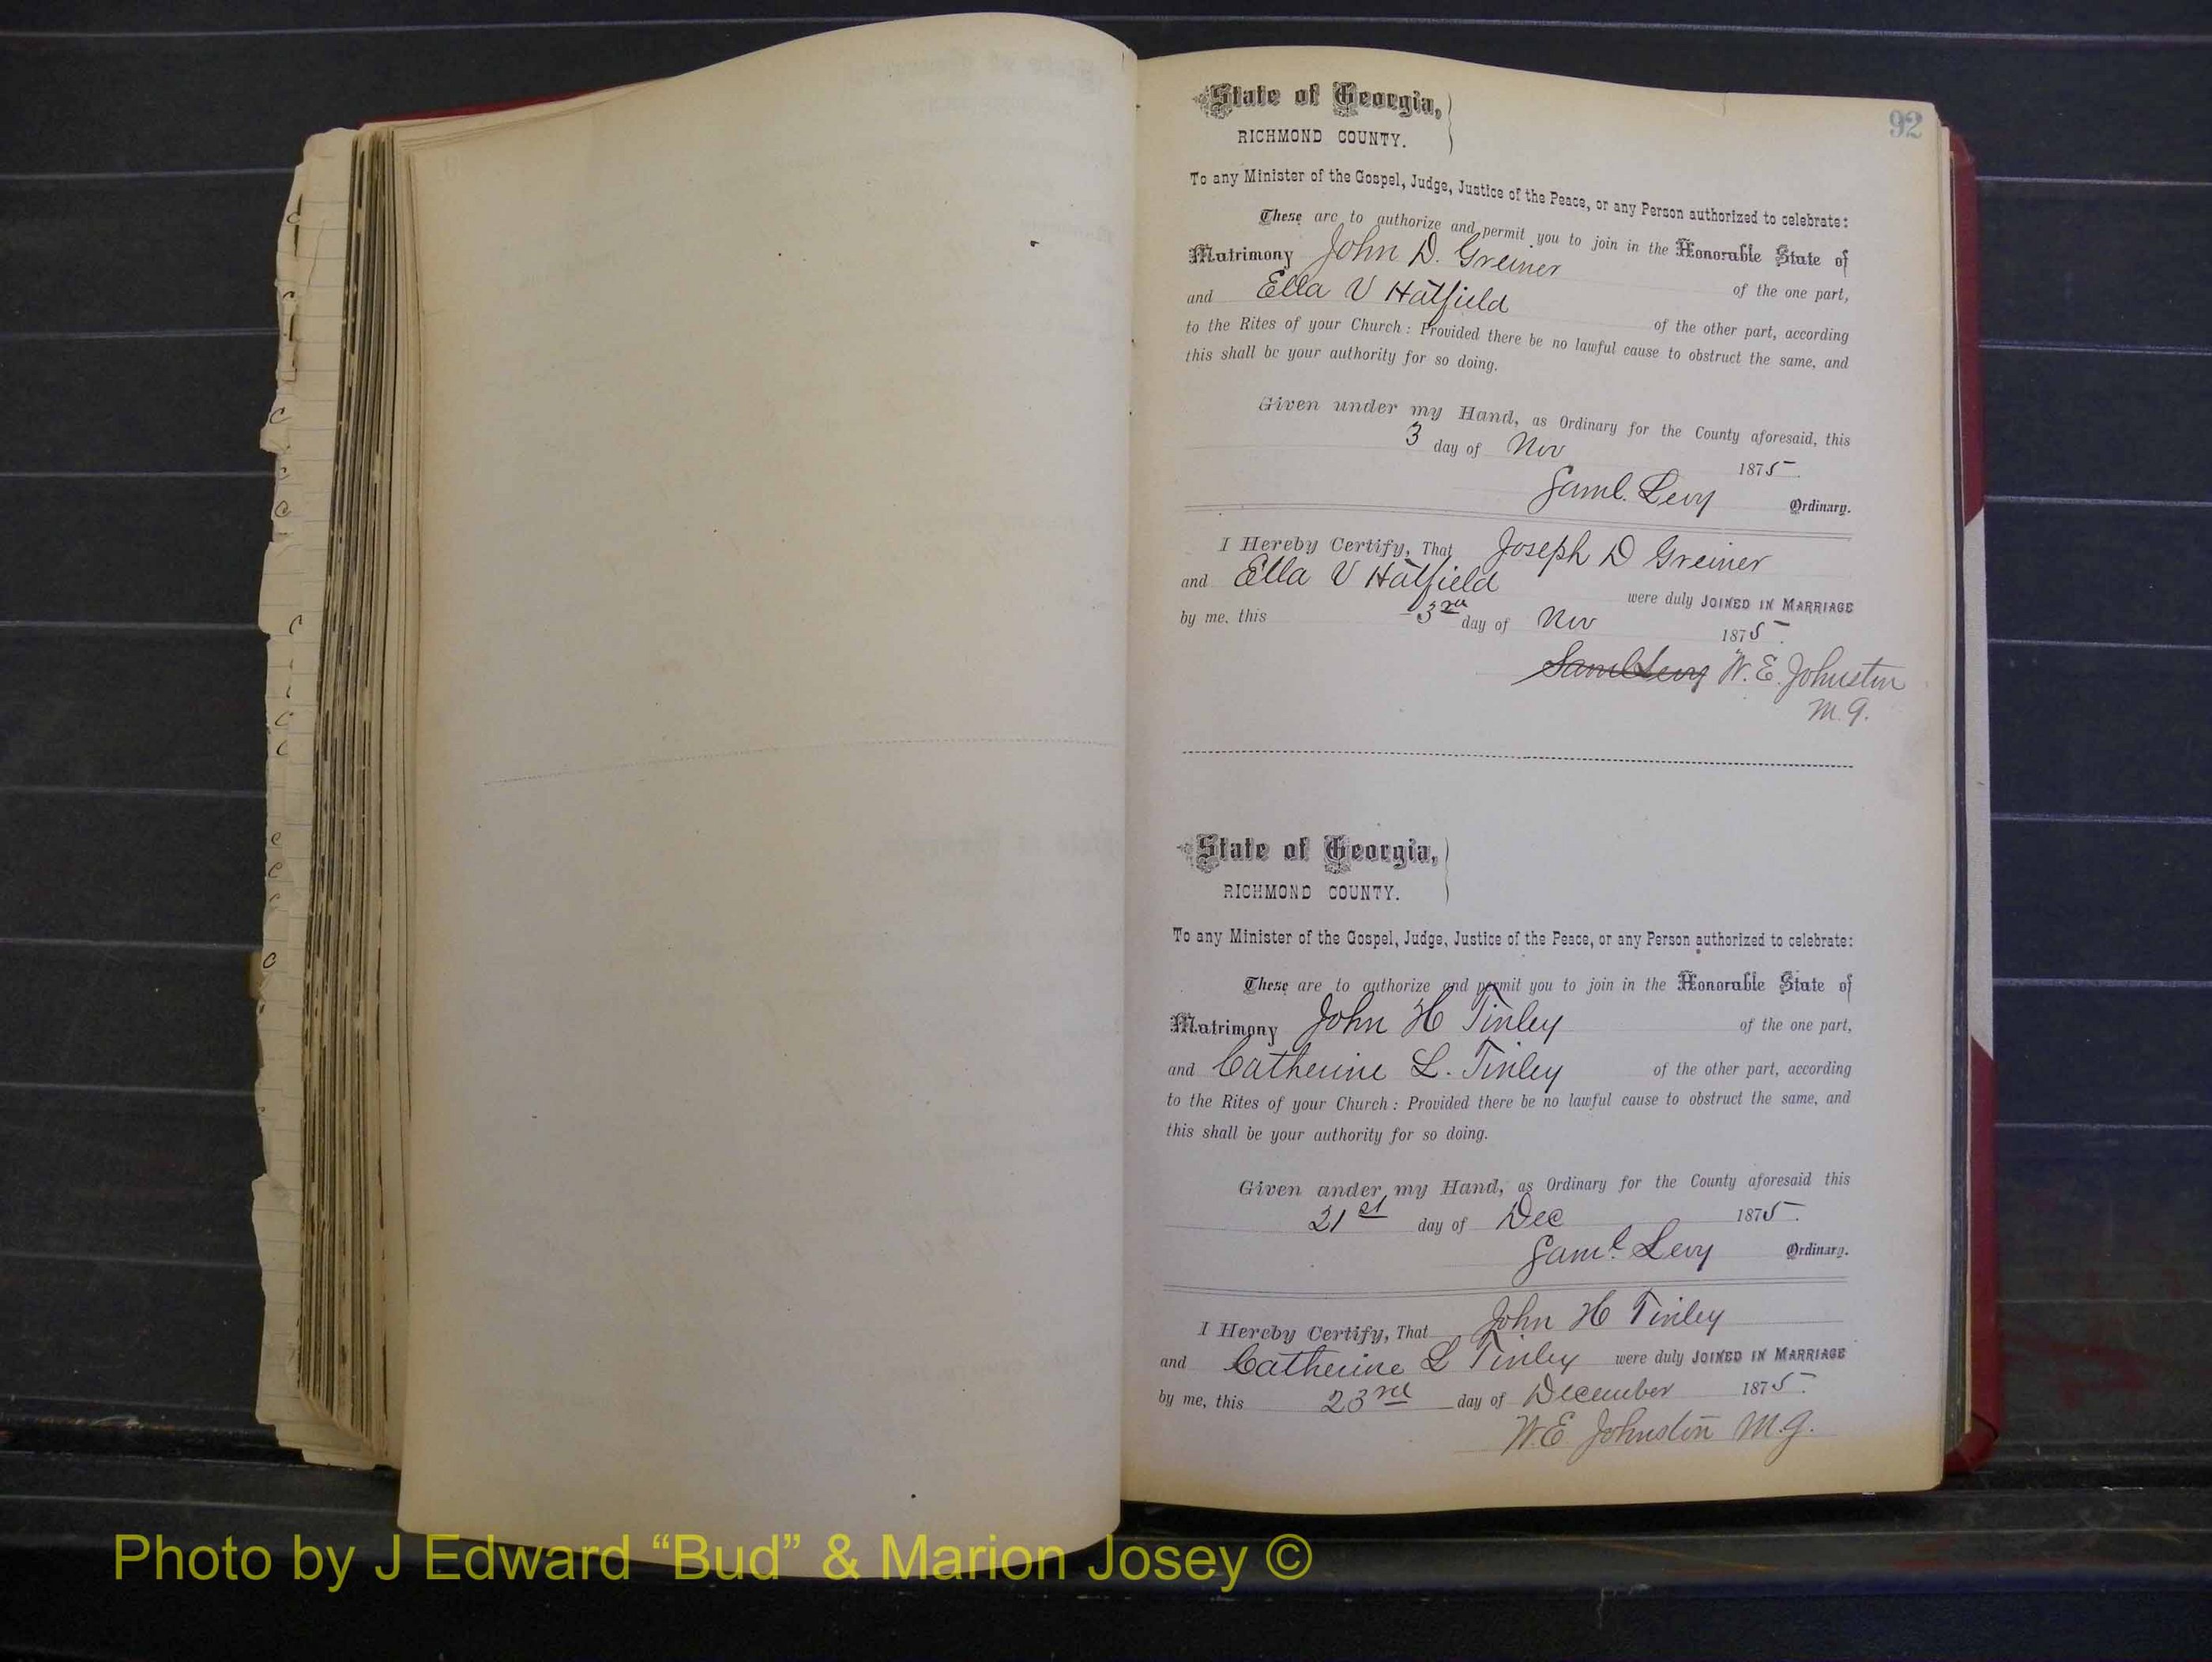 92
State of Georgia,
RICHMOND COUNTY.
To any Minister of the Gospel, Judge, Justice of the Peace, or any Person authorized to celebrate:
These are to authorize and permit you to join in the Honorable State of
Matrimony John D. Greiner of the one part,
and Ella V Hatfield of the other part, according
to the Rites of your Church: Provided there be no lawful cause to obstruct the same, and
this shall be your authority for so doing.
Given under my Hand, as Ordinary for the County aforesaid, this
3 day of Nov 1875
Saml. Levy Ordinary.
I Hereby Certify, That Joseph D Greiner
and Ella V Hatfield were duly JOINED IN MARRIAGE
by me, this 3rd day of Nov 1875.
Saml Levy W. E. Johnston
M. G.
State of Georgia,
RICHMOND COUNTY.
To any Minister of the Gospel, Judge, Justice of the Peace, or any Person authorized to celebrate:
These are to authorize and permit you to join in the Honorable State of
Matrimony John H Tinley of the one part,
and Catherine L. Tinley of the other part, according
to the Rites of your Church: Provided there be no lawful cause to obstruct the same, and
this shall be your authority for so doing.
Given under my Hand, as Ordinary for the County aforesaid this
21st day of Dec 1875.
Saml Levy Ordinary.
I Hereby Certify, That John H Tinley
and Catherine L Tinley were duly JOINED IN MARRIAGE
by me, this 23rd day of December 1875.
W. E Johnston M. G.
Photo by J Edward “Bud” & Marion Josey ©